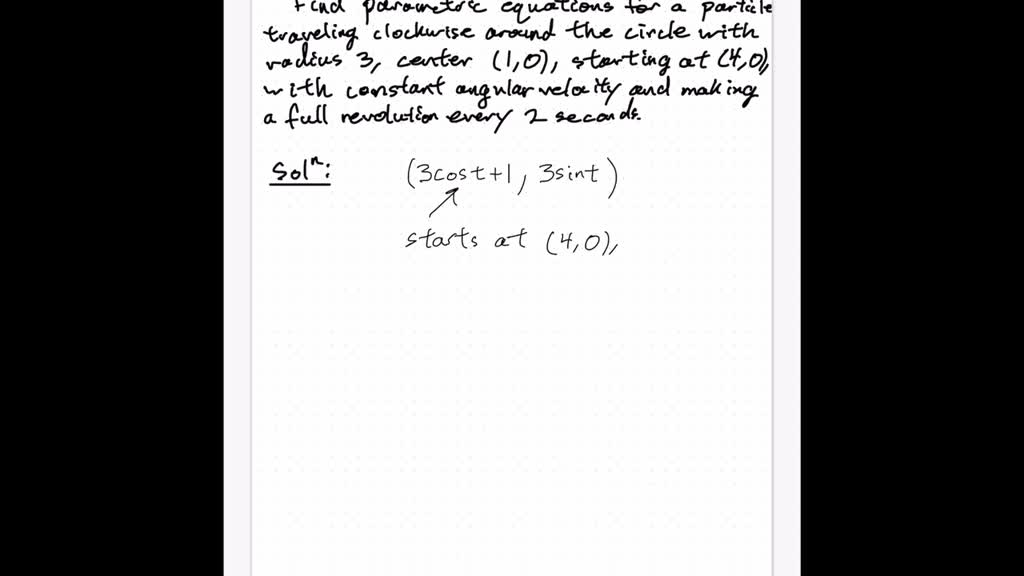 Find parametric equations for a particle
traveling clockwise around the circle with
radius 3, center (1,0), starting at (4,0),
with constant angular velocity and making
a full revolution every 2 seconds.
Solⁿ: (3cost+1, 3sint)
starts at (4,0),